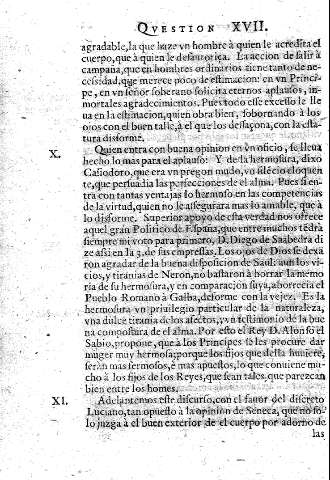 QVESTION XVII.
agradable, la que haze vn hombre à quien le acredita el
cuerpo, que à quien le desautoriza. La accion de salir à
campaña, que en hombres ordinarios tiene tanto de ne-
cessidad, que merece poco de estimacion: en vn Princi-
pe, en vn señor soberano solicita eternos aplausos, in-
mortales agradecimientos. Pues todo esse excesso le lle
ua en la estimacion, quien obra bien, sobornando à los
ojos con el buen talle, à el que los dessaçona, con la esta-
tura disforme.
X. Quien entra con buena opinion en vn oficio, se lleua
hecho lo mas para el aplauso: Y de la hermosura, dixo
Casiodoro, que era vn pregon mudo, vn silẽcio eloquen
te, que persuadia las perfecciones de el alma. Pues si en-
tra con tantas ventajas lo hermoso en las competencias
de la virtud, quien no le assegurara mas lo amable, que à
lo disforme. Superior apoyo de esta verdad nos ofrece
aquel gran Politico de España, que entre muchos tẽdrà
siempre mi voto para primero, D. Diego de Saabedra di
ze assi en la 3. de sus empressas. Los ojos de Dios se dexa
ron agradar de la buena disposicion de Saul: aun los vi-
cios, y tiranias de Neron, no bastaron à borrar la memo
ria de su hermosura, y en comparacion suya, aborrecia el
Pueblo Romano à Galba, deforme con la vejez. Es la
hermosura vn priuilegio particular de la naturaleza,
vna dulce tirania de los afectos, y vn testimonio de la bue
na compostura de el alma. Por esto el Rey D. Alonso el
Sabio, propone, que à los Principes se les procure dar
muger muy hermosa; porque los fijos que della huuiere,
seràn mas fermosos, è mas apuestos, lo que conuiene mu-
cho à los fijos de los Reyes, que sean tales, que parezcan
bien entre los homes.
XI. Adelantemos este discurso, con el fauor del discreto
Luciano, tan opuesto à la opinion de Seneca, que no so-
lo juzga à el buen exterior de el cuerpo por adorno de
las